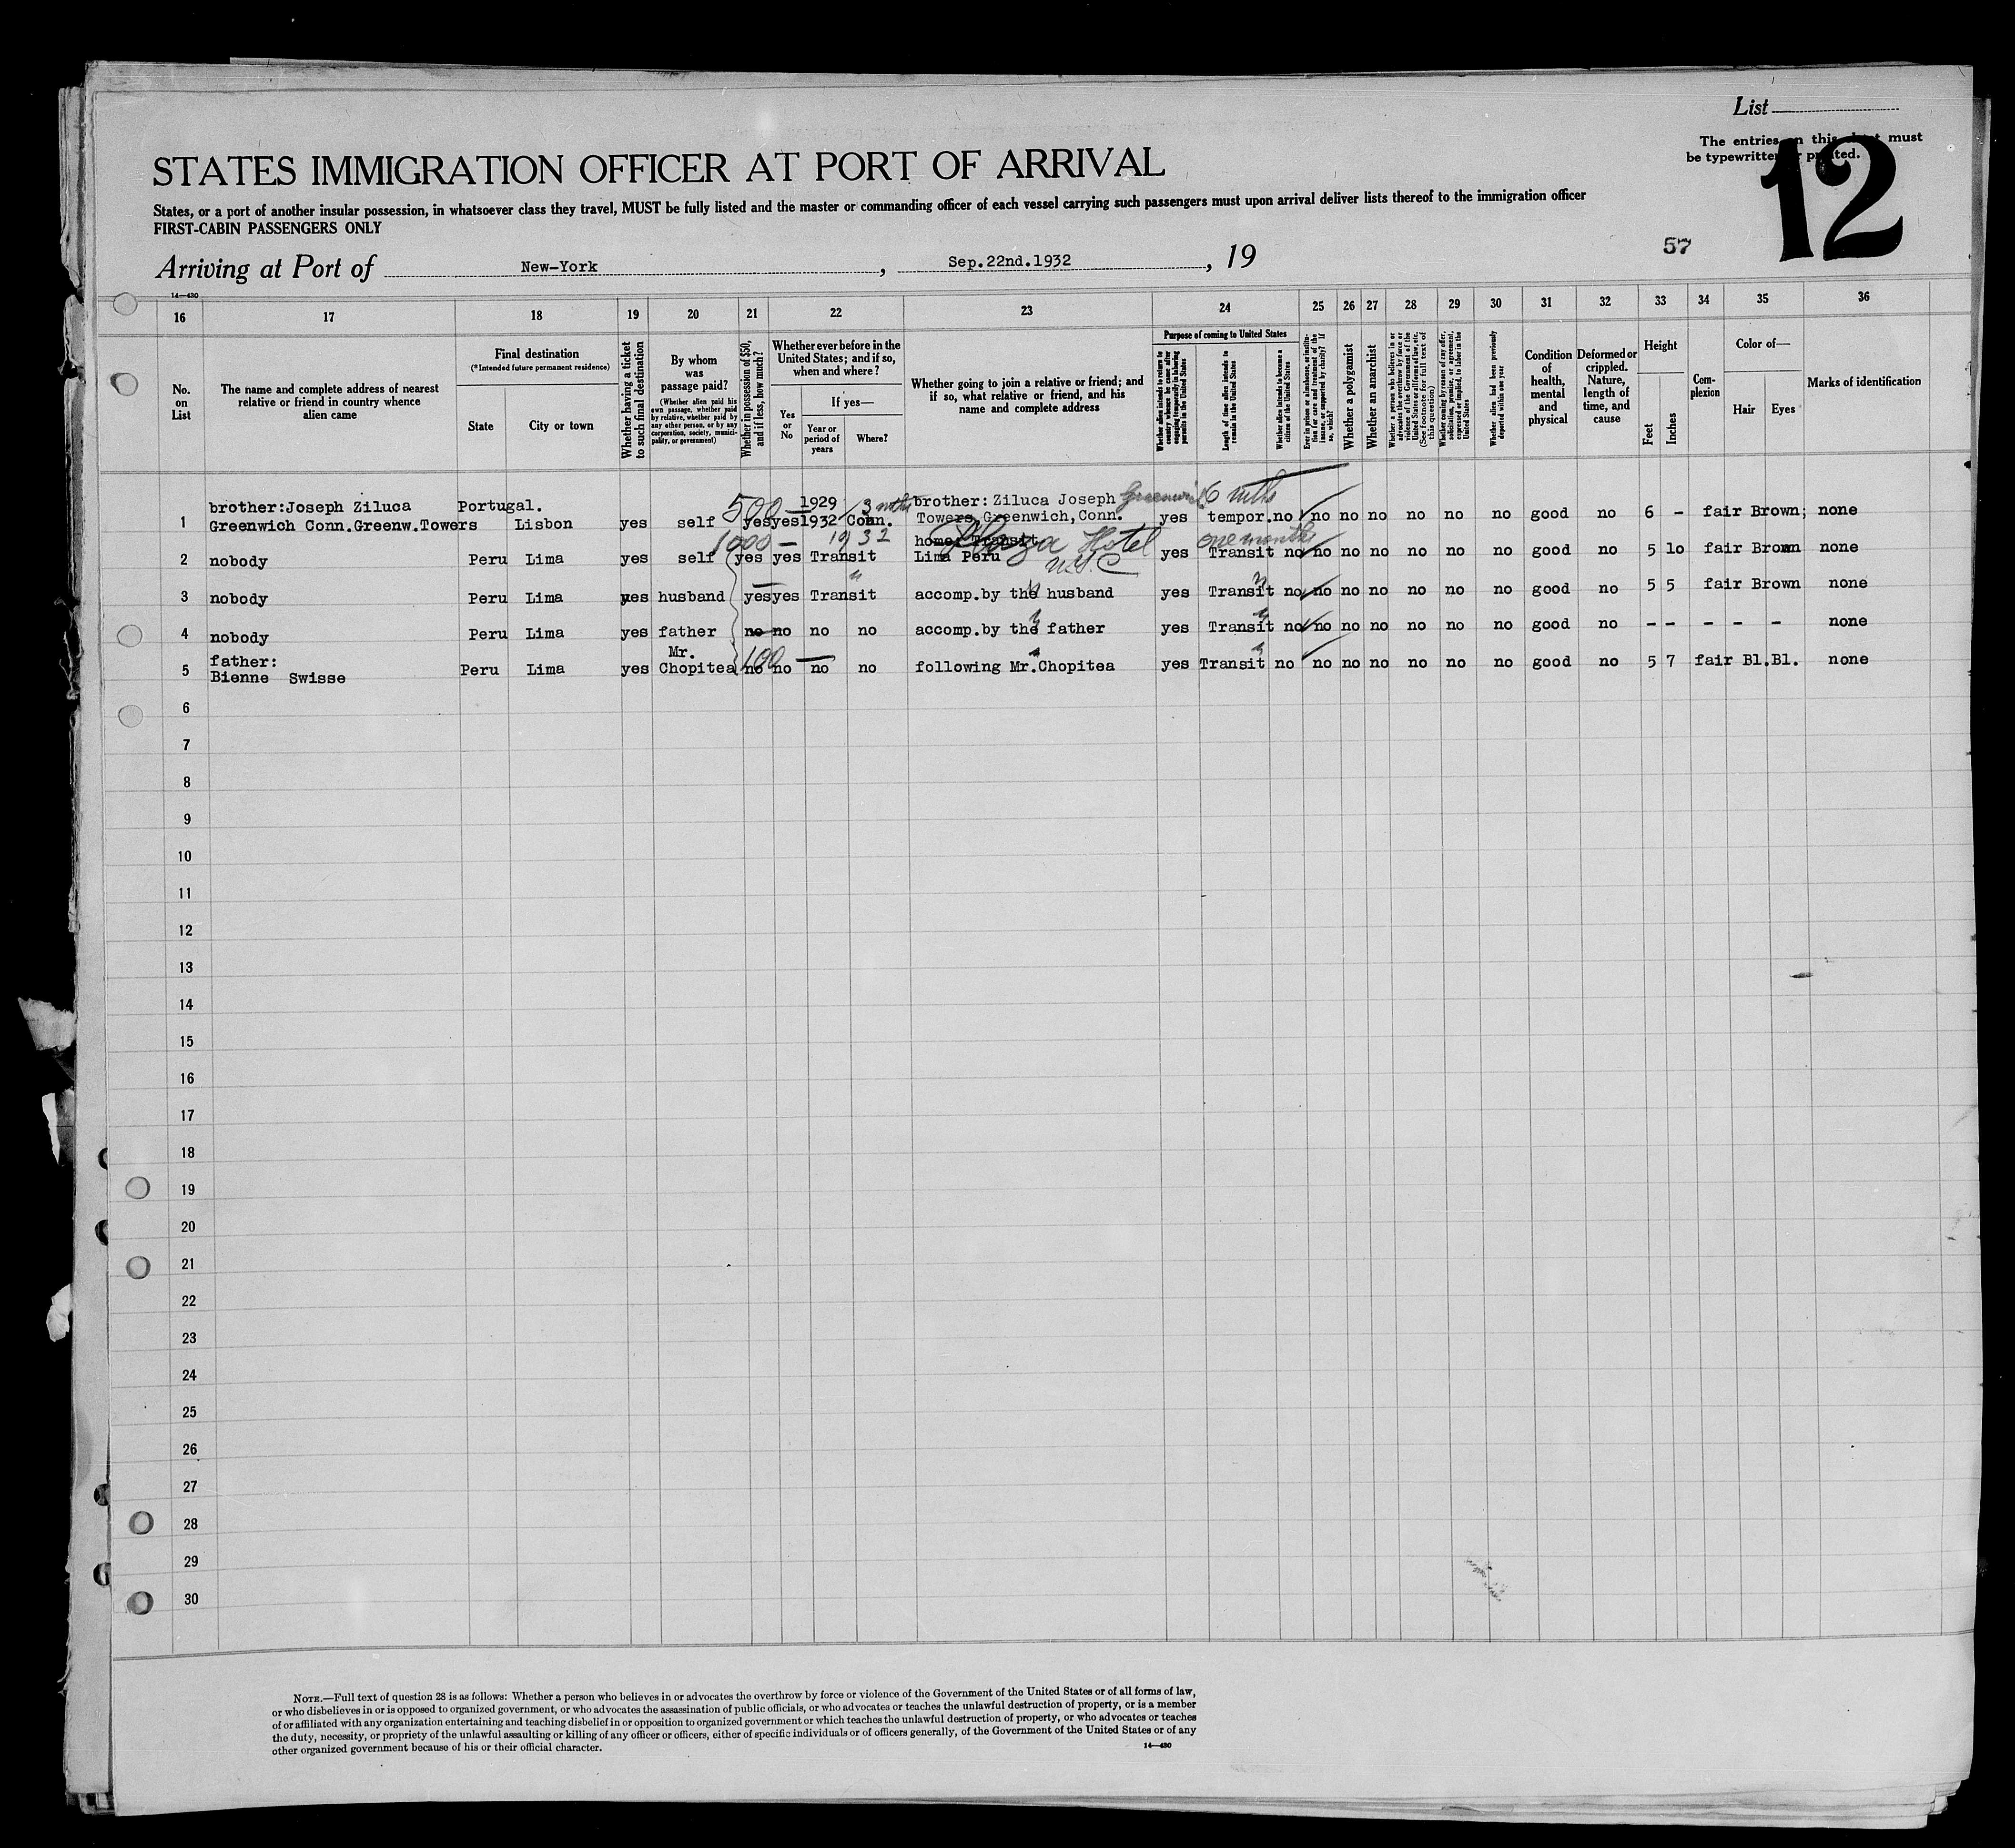 List
The entries on this sheet must
be typewritten or printed.
12
STATES IMMIGRATION OFFICER AT PORT OF ARRIVAL
States, or a port of another insular possession, in whatsoever class they travel, MUST be fully listed and the master or commanding officer of each vessel carrying such passengers must upon arrival deliver lists thereof to the immigration officer
FIRST-CABIN PASSENGERS ONLY
57
Arriving at Port of New-York, Sep.22nd.1932, 19
14—430
16 17 18 19 20 21 22 23 24 25 26 27 28 29 30 31 32 33 34 35 36
No. on List
The name and complete address of nearest relative or friend in country whence alien came
Final destination
(*Intended future permanent residence)
State
City or town
Whether having a ticket to such final destination
By whom was passage paid?
(Whether alien paid his own passage, whether paid by relative, whether paid by any other person, or by any corporation, society, municipality, or government)
Whether in possession of $50, and if less, how much?
Whether ever before in the United States; and if so, when and where?
Yes or No
If yes—
Year or period of years
Where?
Whether going to join a relative or friend; and if so, what relative or friend, and his name and complete address
Purpose of coming to United States
Whether alien intends to return to country whence he came after engaging temporarily in laboring pursuits in the United States
Length of time alien intends to remain in the United States
Whether alien intends to become a citizen of the United States
Ever in prison or almshouse, or institution for care and treatment of the insane, or supported by charity? If so, which?
Whether a polygamist
Whether an anarchist
Whether a person who believes in or advocates the overthrow by force or violence of the Government of the United States or all forms of law, etc. (See footnote for full text of this question)
Whether coming by reason of any offer, solicitation, promise, or agreement, expressed or implied, to labor in the United States
Whether alien had been previously deported within one year
Condition of health, mental and physical
Deformed or crippled. Nature, length of time, and cause
Height
Feet
Inches
Complexion
Color of—
Hair
Eyes
Marks of identification
brother:Joseph Ziluca Portugal. 500 — 1929 3 mths brother: Ziluca Joseph Greenwich 6 mths
1 Greenwich Conn.Greenw.Towers Lisbon yes self yes yes 1932 Conn. Towers,Greenwich,Conn. yes tempor. no no no no no no no good no 6 - fair Brown; none
1000 — 1932 home: Transit Plaza Hotel one months
2 nobody Peru Lima yes self yes yes Transit Lima Peru N.Y.C yes Transit no no no no no no no good no 5 10 fair Brown none
3 nobody Peru Lima yes husband — yes yes Transit " accomp.by the husband " yes Transit " no no no no no no no good no 5 5 fair Brown none
4 nobody Peru Lima yes father no no no no accomp.by the father " yes Transit " no no no no no no no good no - - - - - none
father: Mr. 100 —
5 Bienne Swisse Peru Lima yes Chopitea no no no no following Mr.Chopitea " yes Transit " no no no no no no no good no 5 7 fair Bl.Bl. none
6
7
8
9
10
11
12
13
14
15
16
17
18
19
20
21
22
23
24
25
26
27
28
29
30
NOTE.—Full text of question 28 is as follows: Whether a person who believes in or advocates the overthrow by force or violence of the Government of the United States or of all forms of law,
or who disbelieves in or is opposed to organized government, or who advocates the assassination of public officials, or who advocates or teaches the unlawful destruction of property, or is a member
of or affiliated with any organization entertaining and teaching disbelief in or opposition to organized government or which teaches the unlawful destruction of property, or who advocates or teaches
the duty, necessity, or propriety of the unlawful assaulting or killing of any officer or officers, either of specific individuals or of officers generally, of the Government of the United States or of any
other organized government because of his or their official character.
14—430